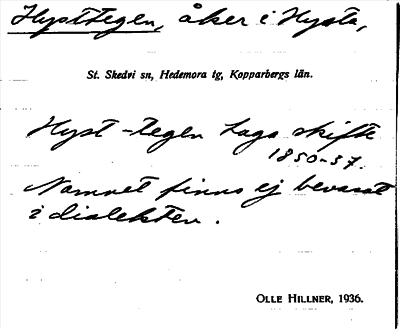 Hysttegen, åker i Hysta,
St. Skedvi sn, Hedemora tg, Kopparbergs län.
Hyst-tegen Laga skifte
1850-57.
Namnet finns ej bevarat
i dialekten.
OLLE HILLNER, 1936.